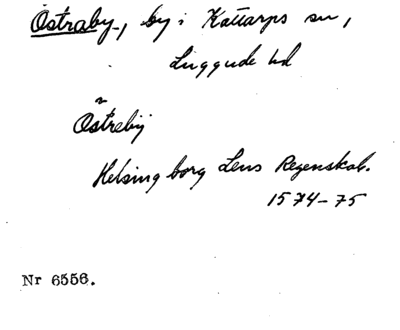 Östraby, by i Kattarps sn,
Luggude hd
Östrebÿ
Helsingborg Lens Regenskab.
1574-75
Nr 6556.